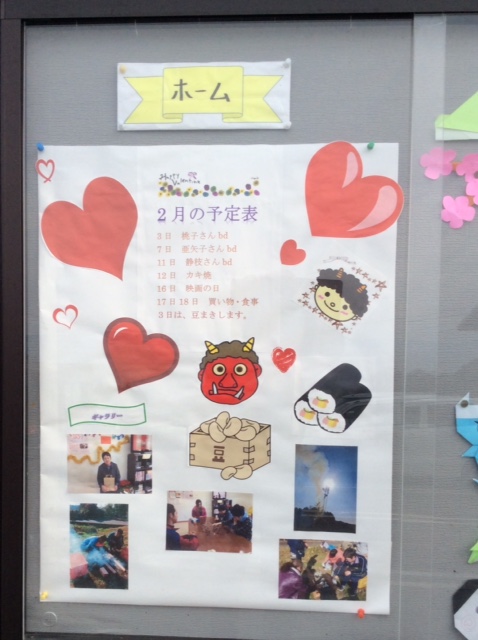 ホーム
2月の予定表
3日 桃子さんbd
7日 亜矢子さんbd
11日 静枝さんbd
12日 カキ焼
16日 映画の日
17日18日 買い物・食事
3日は、豆まきします。
ギャラリー
豆